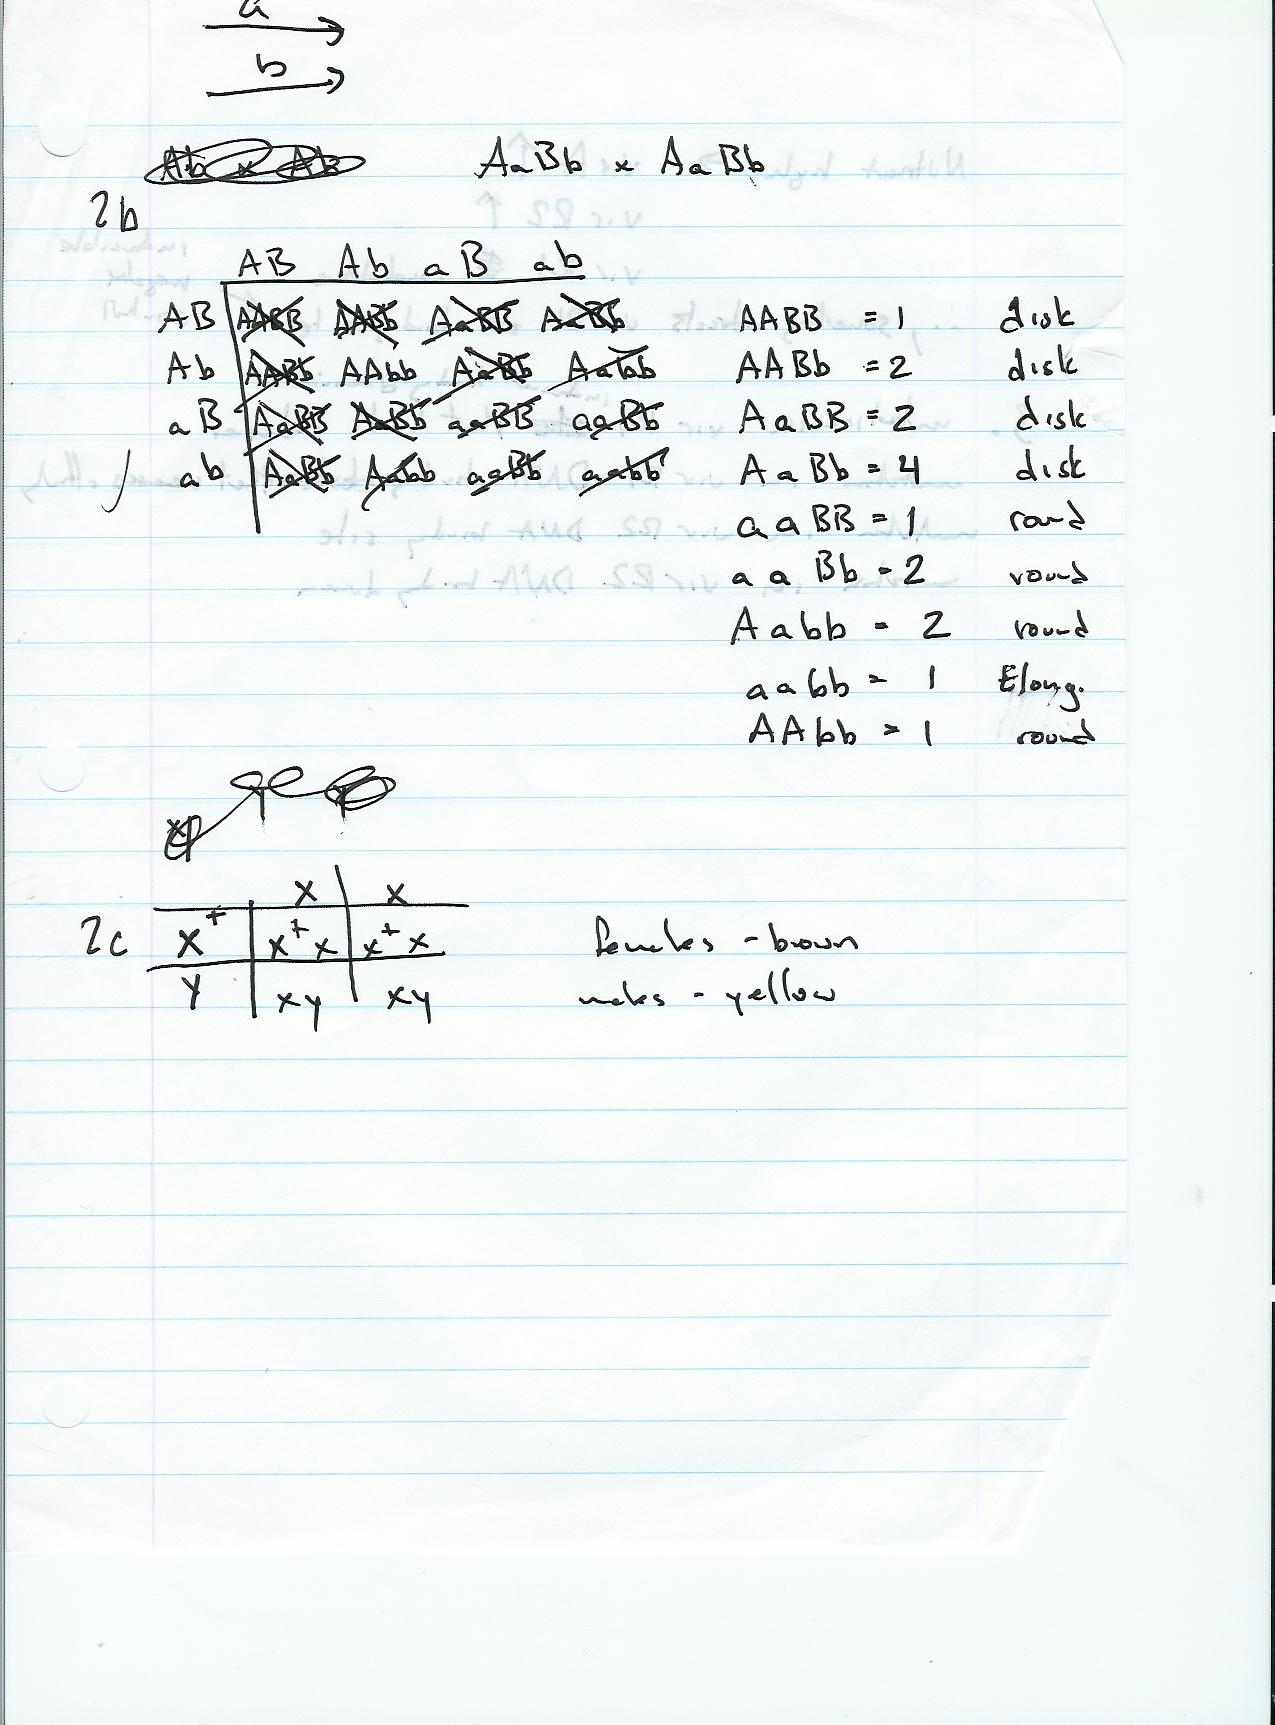 a
b
AaBb x AaBb
2b
AB Ab aB ab
AB AABB AABb AaBB AaBb AABB = 1 disk
Ab AABb AAbb AaBb Aabb AABb = 2 disk
aB AaBB AaBb aaBB aaBb AaBB = 2 disk
ab AaBb Aabb aaBb aabb AaBb = 4 disk
aaBB = 1 round
aaBb = 2 round
Aabb = 2 round
aabb = 1 Elong.
AAbb = 1 round
x x
2c x+ x+x x+x females - brown
y xy xy males - yellow